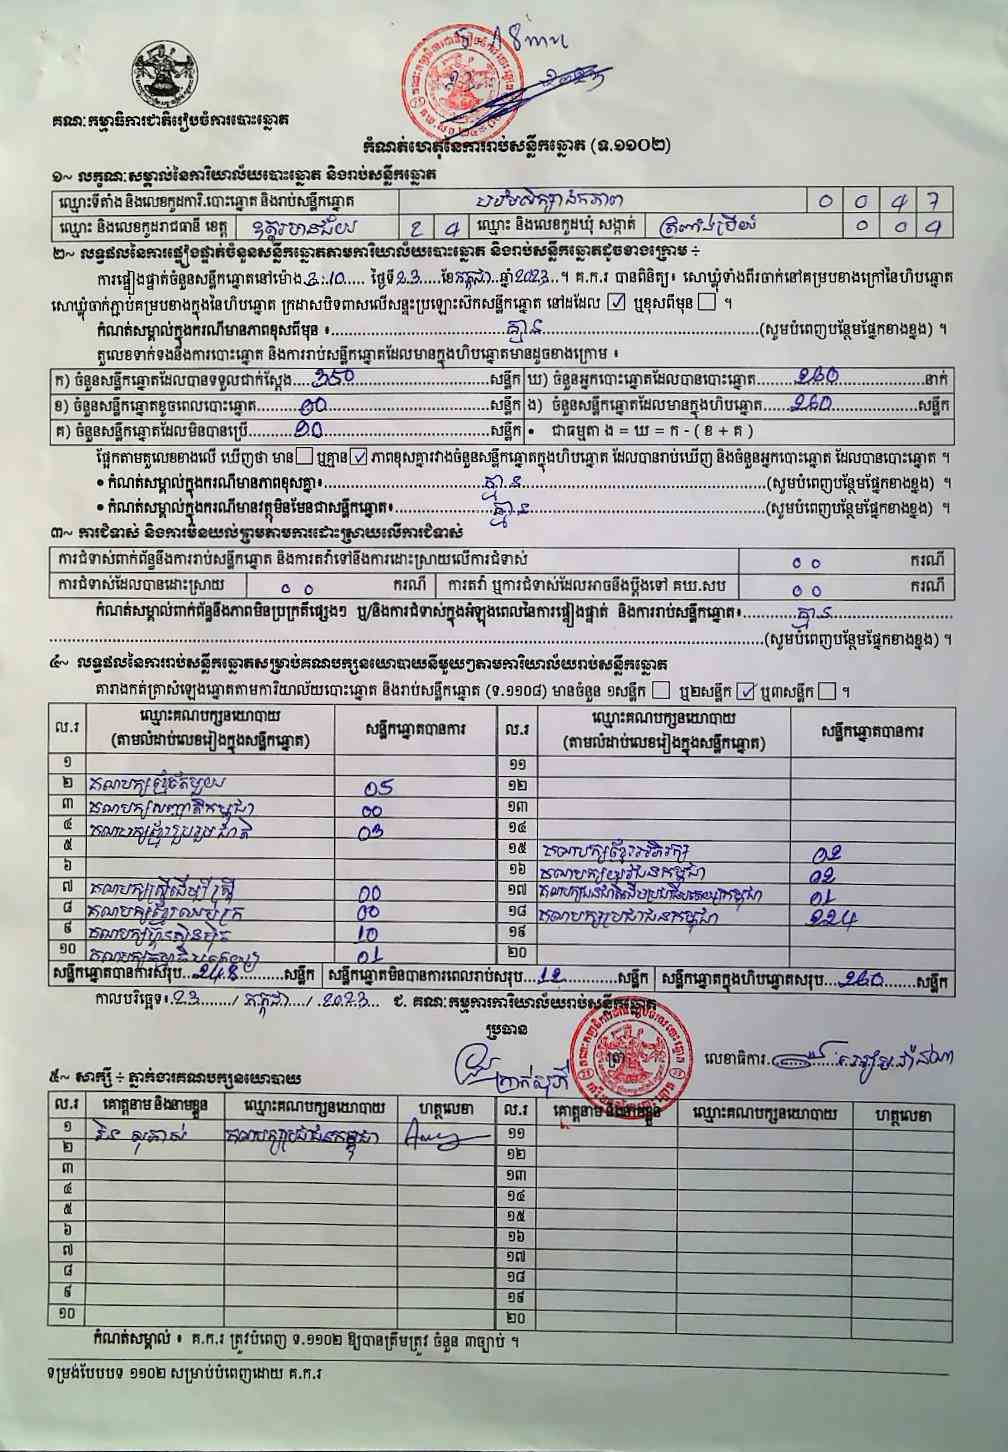 គណៈកម្មាធិការជាតិរៀបចំការបោះឆ្នោត
កំណត់ហេតុនៃការរាប់សន្លឹកឆ្នោត (ទ.១១០២)
១~ លក្ខណៈសម្គាល់នៃការិយាល័យបោះឆ្នោត និងរាប់សន្លឹកឆ្នោត
ឈ្មោះទីតាំង និងលេខកូដការិ.បោះឆ្នោត និងរាប់សន្លឹកឆ្នោត 0 0 4 7
ឈ្មោះ និងលេខកូដរាជធានី ខេត្ត ឧត្តរមានជ័យ 2 ឈ្មោះ និងលេខកូដឃុំ សង្កាត់ ត្រពាំងប្រីយ៍ 0 0
២~ លទ្ធផលនៃការផ្ទៀងផ្ទាត់ចំនួនសន្លឹកឆ្នោតតាមការិយាល័យបោះឆ្នោត និងរាប់សន្លឹកឆ្នោតដូចខាងក្រោម ÷
ការផ្ទៀងផ្ទាត់ចំនួនសន្លឹកឆ្នោតនៅម៉ោង 3:10 ថ្ងៃទី 23 ខែ កក្កដា ឆ្នាំ 2023 ។ គ.ក.រ បានពិនិត្យ៖ សោឃ្លុំទាំងពីរចាក់នៅគម្របខាងក្រៅនៃហិបឆ្នោត
សោឃ្លុំចាក់ភ្ជាប់គម្របខាងក្នុងនៃហិបឆ្នោត ក្រដាសបិទពាសលើសន្ទះប្រឡោះស៊កសន្លឹកឆ្នោត នៅដដែល ☑ ឬខុសពីមុន ☐ ។
កំណត់សម្គាល់ក្នុងករណីមានភាពខុសពីមុន ៖ គ្មាន (សូមបំពេញបន្ថែមផ្នែកខាងខ្នង) ។
តួលេខទាក់ទងនឹងការបោះឆ្នោត និងការរាប់សន្លឹកឆ្នោតដែលមានក្នុងហិបឆ្នោតមានដូចខាងក្រោម ៖
ក) ចំនួនសន្លឹកឆ្នោតដែលបានទទួលជាក់ស្តែង 350 សន្លឹក ឃ) ចំនួនអ្នកបោះឆ្នោតដែលបានបោះឆ្នោត 260 នាក់
ខ) ចំនួនសន្លឹកឆ្នោតខូចពេលបោះឆ្នោត 00 សន្លឹក ង) ចំនួនសន្លឹកឆ្នោតដែលមានក្នុងហិបឆ្នោត 260 សន្លឹក
គ) ចំនួនសន្លឹកឆ្នោតដែលមិនបានប្រើ 90 សន្លឹក • ជាធម្មតា ង = ឃ = ក - ( ខ + គ )
ផ្អែកតាមតួលេខខាងលើ ឃើញថា មាន ☐ ឬគ្មាន ☑ ភាពខុសគ្នារវាងចំនួនសន្លឹកឆ្នោតក្នុងហិបឆ្នោត ដែលបានរាប់ឃើញ និងចំនួនអ្នកបោះឆ្នោត ដែលបានបោះឆ្នោត ។
• កំណត់សម្គាល់ក្នុងករណីមានភាពខុសគ្នា៖ គ្មាន (សូមបំពេញបន្ថែមផ្នែកខាងខ្នង) ។
• កំណត់សម្គាល់ក្នុងករណីមានវត្ថុមិនមែនជាសន្លឹកឆ្នោត៖ គ្មាន (សូមបំពេញបន្ថែមផ្នែកខាងខ្នង) ។
៣~ ការជំទាស់ និងការមិនយល់ព្រមតាមការដោះស្រាយលើការជំទាស់
ការជំទាស់ពាក់ព័ន្ធនឹងការរាប់សន្លឹកឆ្នោត និងការតវ៉ាទៅនឹងការដោះស្រាយលើការជំទាស់ 00 ករណី
ការជំទាស់ដែលបានដោះស្រាយ 00 ករណី ការតវ៉ា ឬការជំទាស់ដែលអាចនឹងប្តឹងទៅ គឃ.សប 00 ករណី
កំណត់សម្គាល់ពាក់ព័ន្ធនឹងភាពមិនប្រក្រតីផ្សេងៗ ឬ/និងការជំទាស់ក្នុងអំឡុងពេលនៃការផ្ទៀងផ្ទាត់ និងការរាប់សន្លឹកឆ្នោត៖ គ្មាន
(សូមបំពេញបន្ថែមផ្នែកខាងខ្នង) ។
៤~ លទ្ធផលនៃការរាប់សន្លឹកឆ្នោតសម្រាប់គណបក្សនយោបាយនីមួយៗតាមការិយាល័យរាប់សន្លឹកឆ្នោត
តារាងកត់ត្រាសំឡេងឆ្នោតតាមការិយាល័យបោះឆ្នោត និងរាប់សន្លឹកឆ្នោត (ទ.១១០៨) មានចំនួន ១សន្លឹក ☐ ឬ២សន្លឹក ☑ ឬ៣សន្លឹក ☐ ។
ល.រ ឈ្មោះគណបក្សនយោបាយ (តាមលំដាប់លេខរៀងក្នុងសន្លឹកឆ្នោត) សន្លឹកឆ្នោតបានការ ល.រ ឈ្មោះគណបក្សនយោបាយ (តាមលំដាប់លេខរៀងក្នុងសន្លឹកឆ្នោត) សន្លឹកឆ្នោតបានការ
១ ១១
២ គណបក្សឃ្មុំតែមួយ 05 ១២
៣ គណបក្សសញ្ជាតិកម្ពុជា 00 ១៣
៤ គណបក្សខ្មែររួបរួមជាតិ 03 ១៤
៥ ១៥ គណបក្សខ្មែរអភិរក្ស 02
៦ ១៦ គណបក្សយុវជនកម្ពុជា 02
៧ គណបក្សស្ត្រីដើម្បីស្ត្រី 00 ១៧ គណបក្សជនជាតិដើមប្រជាធិបតេយ្យកម្ពុជា 01
៨ គណបក្សខ្មែរឈប់ក្រ 00 ១៨ គណបក្សប្រជាជនកម្ពុជា 224
៩ គណបក្សហ៊្វុនស៊ិនប៉ិច 10 ១៩
១០ គណបក្សកម្មាធិបតេយ្យ 01 ២០
សន្លឹកឆ្នោតបានការសរុប 248 សន្លឹក សន្លឹកឆ្នោតមិនបានការពេលរាប់សរុប 12 សន្លឹក សន្លឹកឆ្នោតក្នុងហិបឆ្នោតសរុប 260 សន្លឹក
កាលបរិច្ឆេទ៖ 23 / កក្កដា / 2023 ជ. គណៈកម្មការការិយាល័យរាប់សន្លឹកឆ្នោត
ប្រធាន
ត្រា
លេខាធិការ
៥~ សាក្សី ÷ ភ្នាក់ងារគណបក្សនយោបាយ
ល.រ គោត្តនាម និងនាមខ្លួន ឈ្មោះគណបក្សនយោបាយ ហត្ថលេខា ល.រ គោត្តនាម និងនាមខ្លួន ឈ្មោះគណបក្សនយោបាយ ហត្ថលេខា
១ គណបក្សប្រជាជនកម្ពុជា ១១
២ ១២
៣ ១៣
៤ ១៤
៥ ១៥
៦ ១៦
៧ ១៧
៨ ១៨
៩ ១៩
១០ ២០
កំណត់សម្គាល់ ៖ គ.ក.រ ត្រូវបំពេញ ទ.១១០២ ឱ្យបានត្រឹមត្រូវ ចំនួន ៣ច្បាប់ ។
ទម្រង់បែបបទ ១១០២ សម្រាប់បំពេញដោយ គ.ក.រ